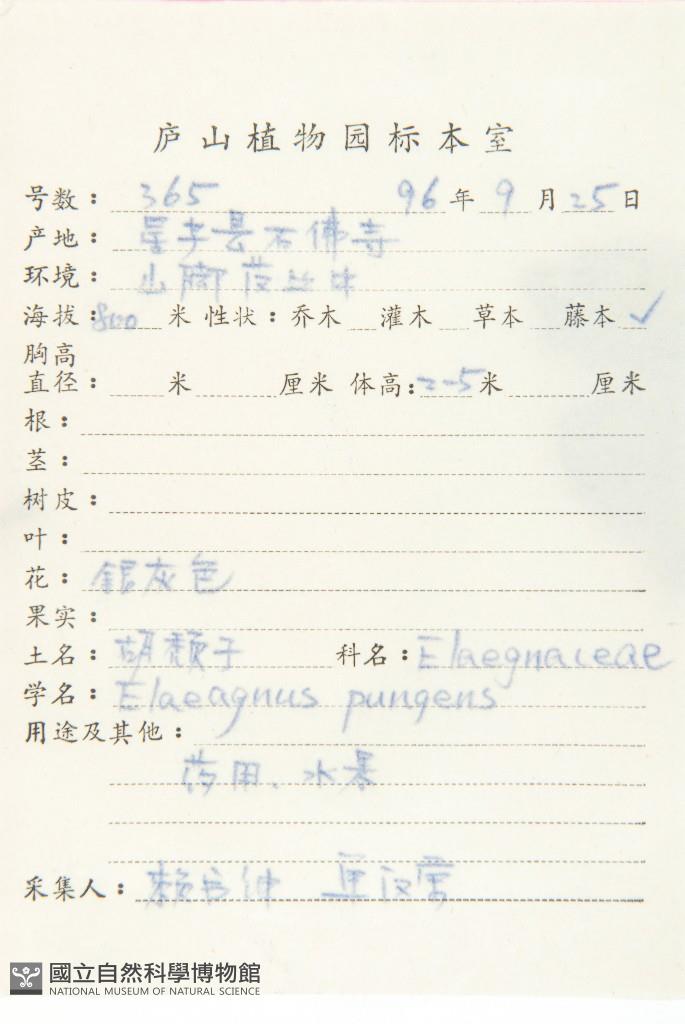 庐山植物园标本室
号数: 365 96年9月25日
产地: 星子县石佛寺
环境: 山脚 丛中
海拔: 800米 性状: 乔木 灌木 草本 藤本 ✓
胸高
直径: 米 厘米 体高: 2-5米 厘米
根:
茎:
树皮:
叶:
花: 銀灰色
果实:
土名: 胡颓子 科名: Elaegnaceae
学名: Elaeagnus pungens
用途及其他:
药用、水果
采集人: 赖书绅
國立自然科學博物館
NATIONAL MUSEUM OF NATURAL SCIENCE